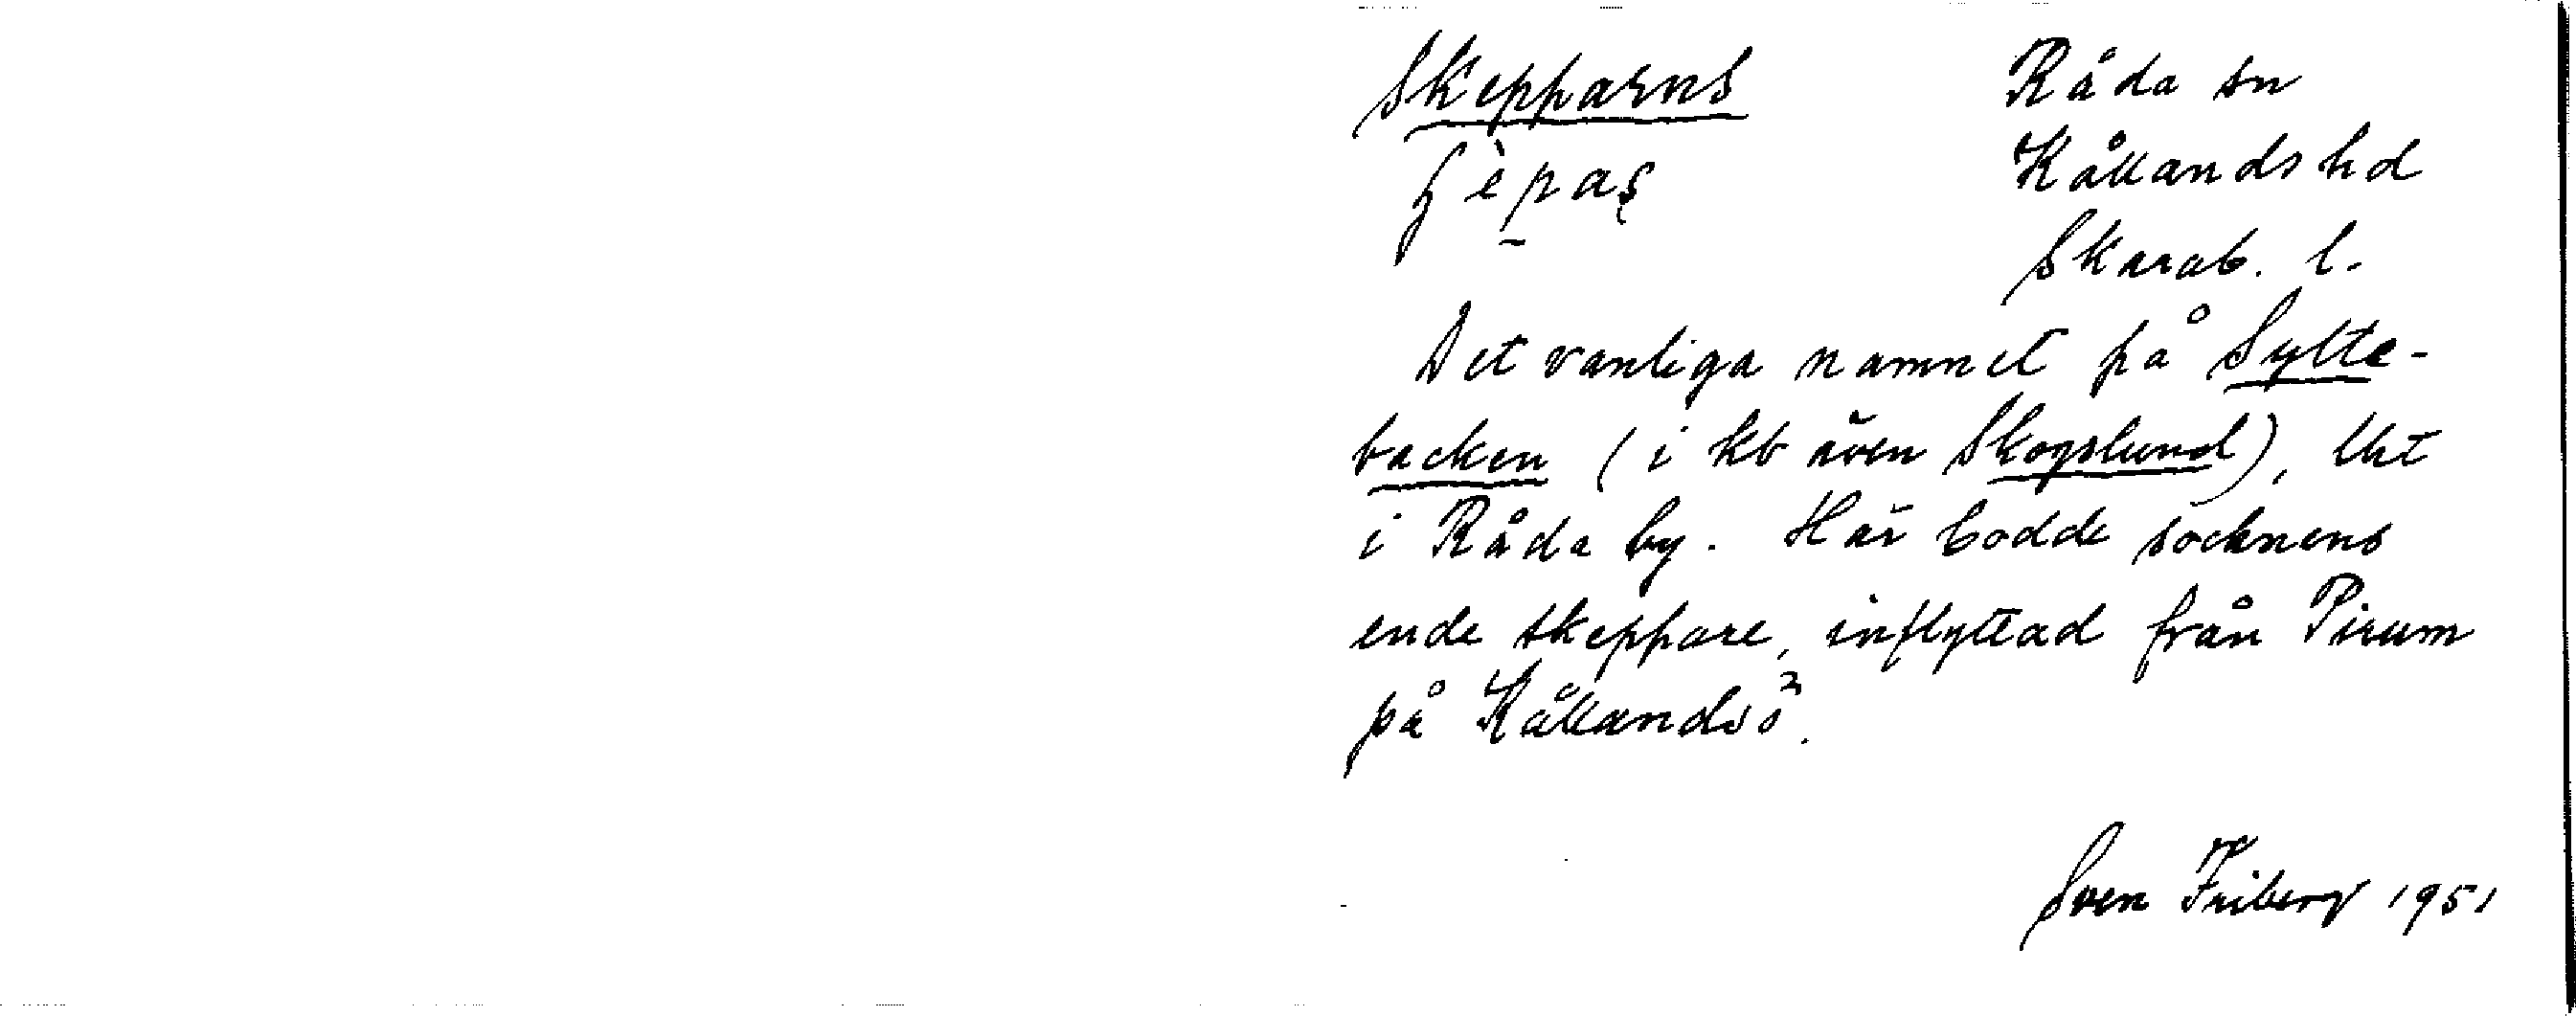 Skepparns Råda sn
ʃèpaş Kållands hd
Skarab. l.
Det vanliga namnet på Sylte-
backen (i kb även Skogslund), lht
i Råda by. Här bodde socknens
ende skeppare, inflyttad från Pirum
på Kållandsö.
Sven Friberg 1951